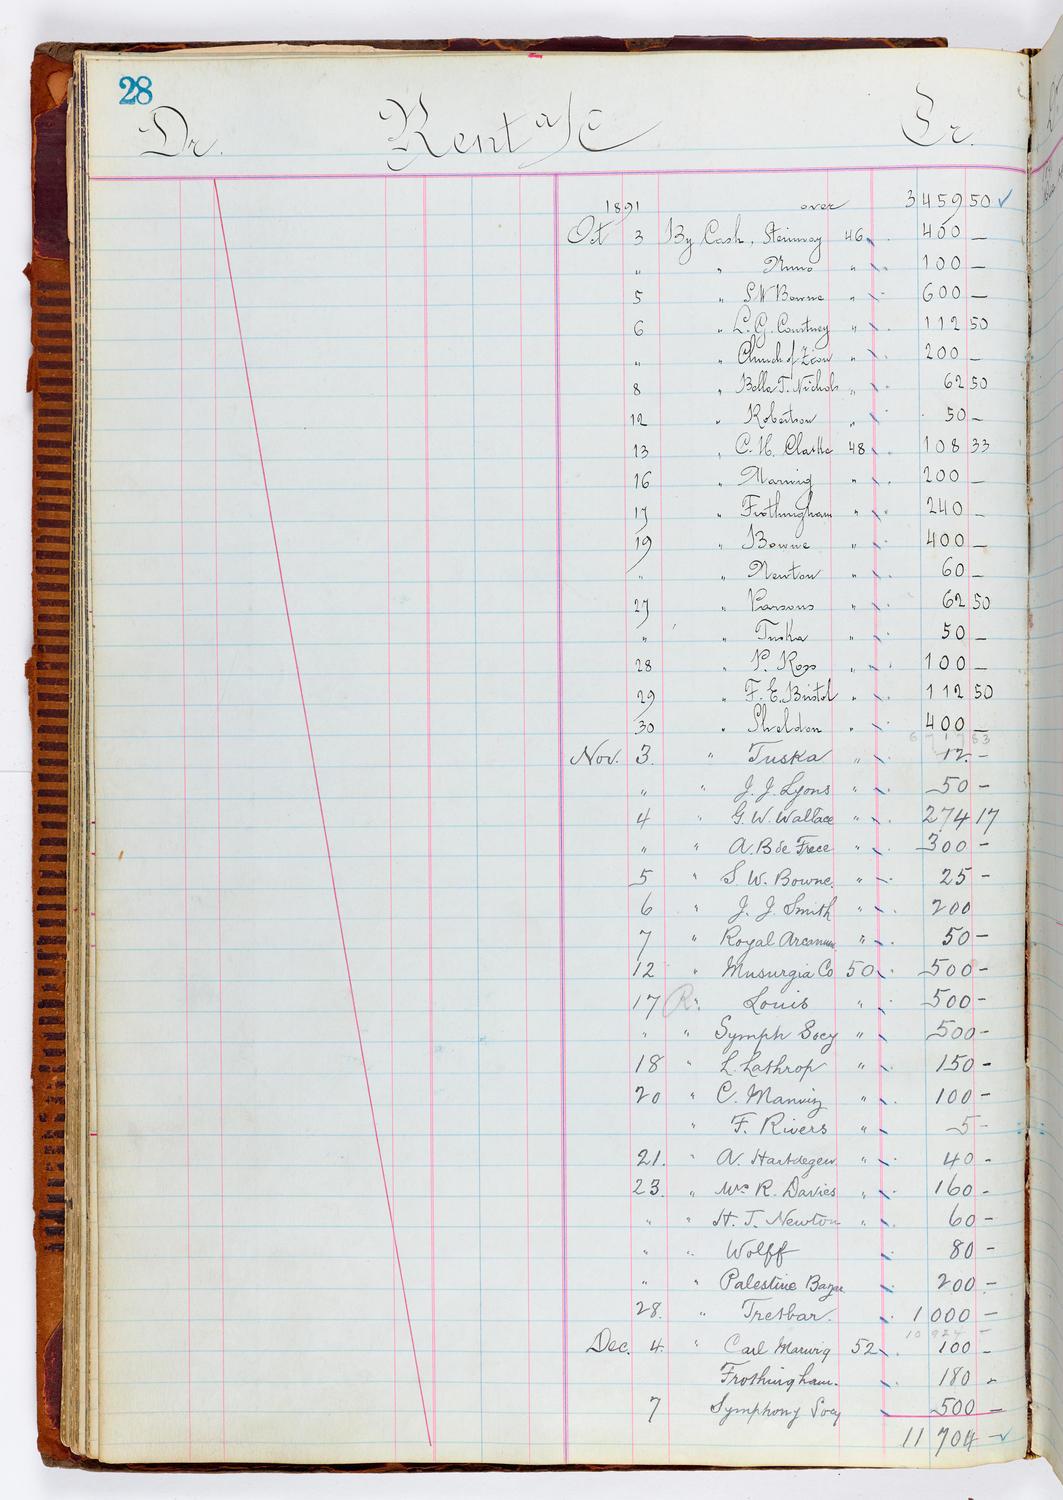 28
Dr. Rent a/c Cr.
1891 over 3459 50 ✓
Oct 3 By Cash, Steinway 46 400 —
" " Nuno " 100 —
5 " S W Bowne " 600 —
6 " L. G. Courtney " 112 50
" " Church of Zion " 200 —
8 " Bella T. Nichols " 62 50
12 " Robertson " 50 —
13 " C. H. Clarke 48 108 33
16 " Marwig " 200 —
17 " Frothingham " 240 —
19 " Bowne " 400 —
" " Newton " 60 —
27 " Parsons " 62 50
" " Tuska " 50 —
28 " P. Ross " 100 —
29 " F. E. Bristol " 112 50
30 " Sheldon " 400 —
Nov. 3. " Tuska " 12. —
" " J. J. Lyons " 50 —
4 " G. W. Wallace " 274 17
" " A. B de Frece " 300 —
5 " S. W. Bowne. " 25 —
6 " J. J. Smith " 200
7 " Royal Arcanum " 50 —
12 " Musurgia Co 50 500 —
17 " Louis " 500 —
" " Symph Socy " 500 —
18 " L. Lathrop " 150 —
20 " C. Marwig " 100 —
" F. Rivers " 5 —
21. " A. Hartdegen " 40 —
23. " Wm R. Davies " 160 -
" " H. T. Newton " 60 —
" " Wolff 80 —
" " Palestine Bazar 200 —
28. " Tretbar. 1 000 —
10 924 —
Dec. 4. " Carl Marwig 52 100 —
Frothingham. 180 -
7 Symphony Socy 500 —
11 704 — ✓